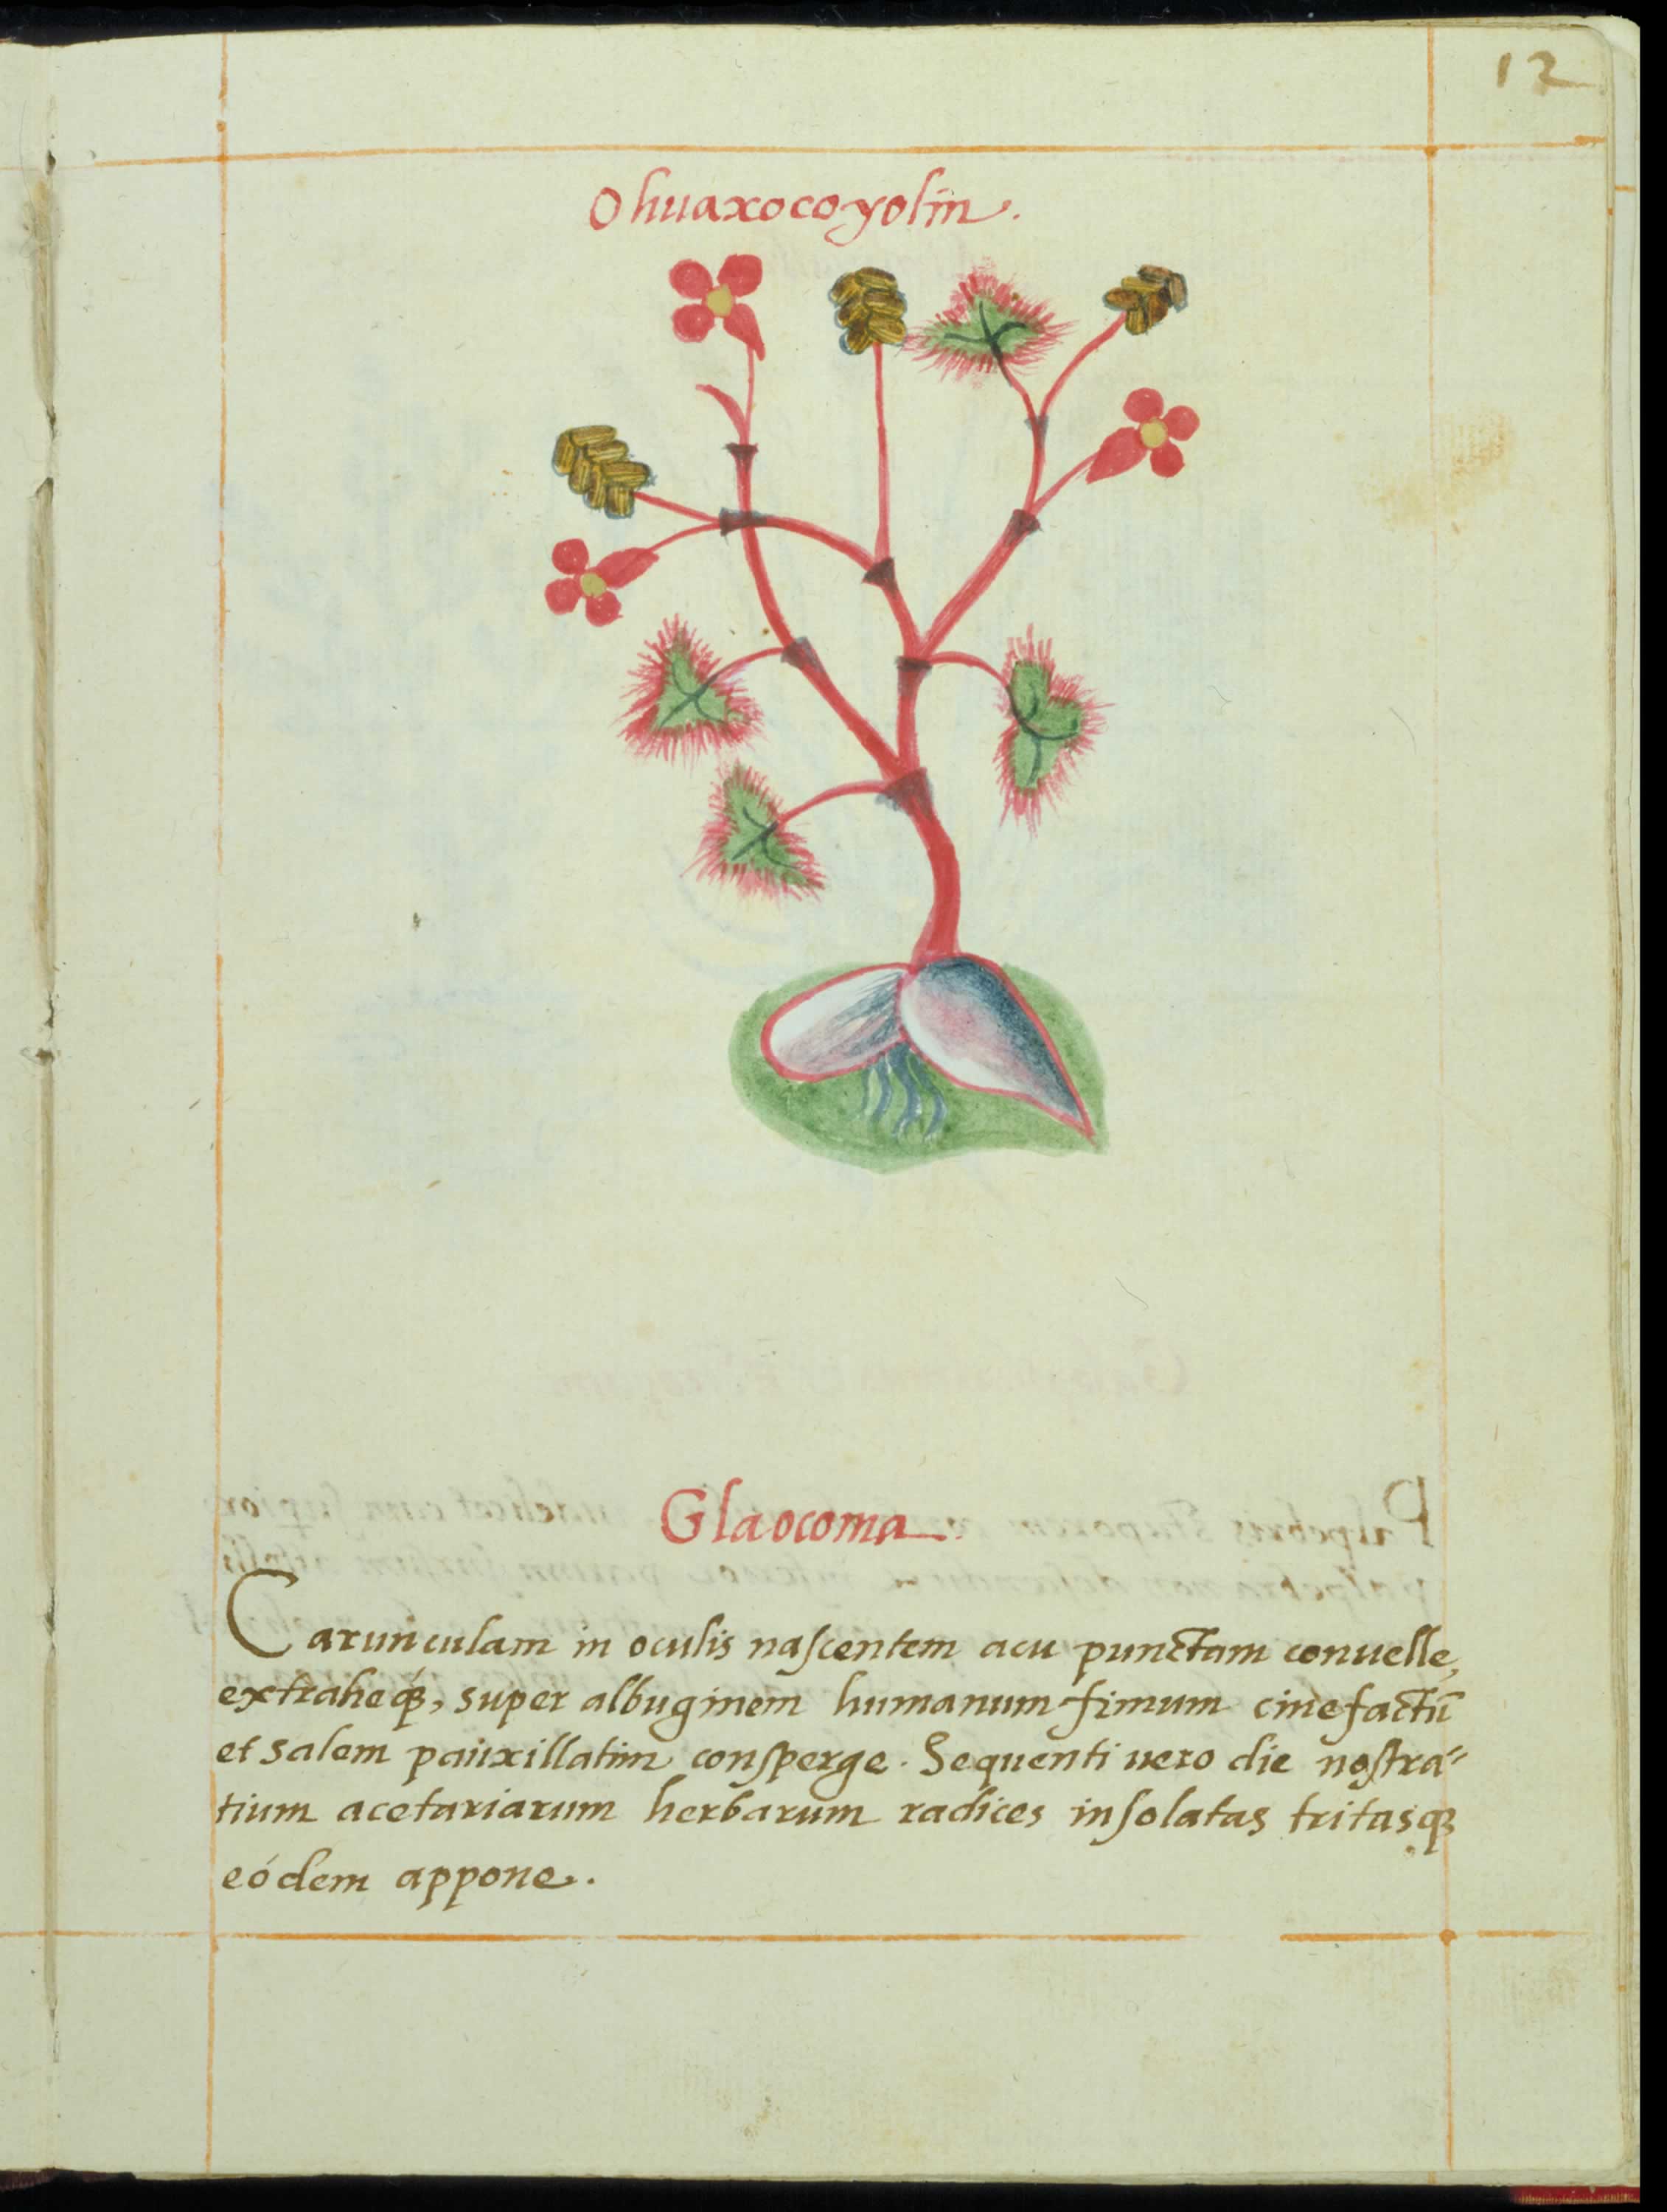 12
Ohuaxocoyolin.
Glaocoma.
Carunculam in oculis naſcentem acu punctam conuelle,
extraheq́ꝫ, super albuginem humanum fimum cinefactū
et salem pauxillatim conſperge. Sequenti uero die noſtra-
tium acetariarum herbarum radices inſolatas tritasqꝫ
eódem appone.